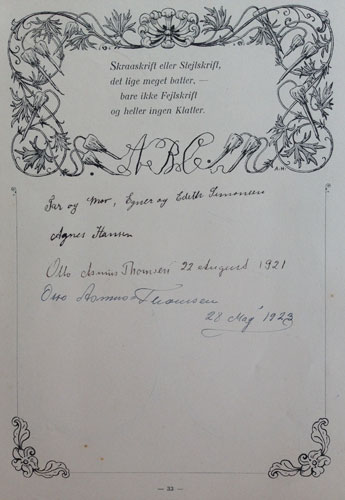 Skraaskrift eller Stejlskrift,
det lige meget batter, —
bare ikke Fejlskrift
og heller ingen Klatter.
A. B. C.
A.H.
Far og Mor, Egner og Edith Simonsen
Agnes Hansen
Otto Asmus Thomsen 22 August 1921
Otto Asmus Thomsen
28 Maj 1923
— 33 —